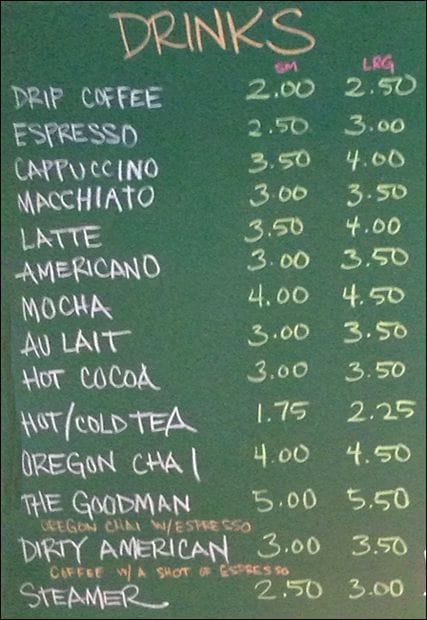 DRINKS
SM LRG
DRIP COFFEE 2.00 2.50
ESPRESSO 2.50 3.00
CAPPUCCINO 3.50 4.00
MACCHIATO 3.00 3.50
LATTE 3.50 4.00
AMERICANO 3.00 3.50
MOCHA 4.00 4.50
AU LAIT 3.00 3.50
HOT COCOA 3.00 3.50
HOT/COLD TEA 1.75 2.25
OREGON CHAI 4.00 4.50
THE GOODMAN 5.00 5.50
OREGON CHAI W/ESPRESSO
DIRTY AMERICAN 3.00 3.50
COFFEE W/A SHOT OF ESPRESSO
STEAMER 2.50 3.00